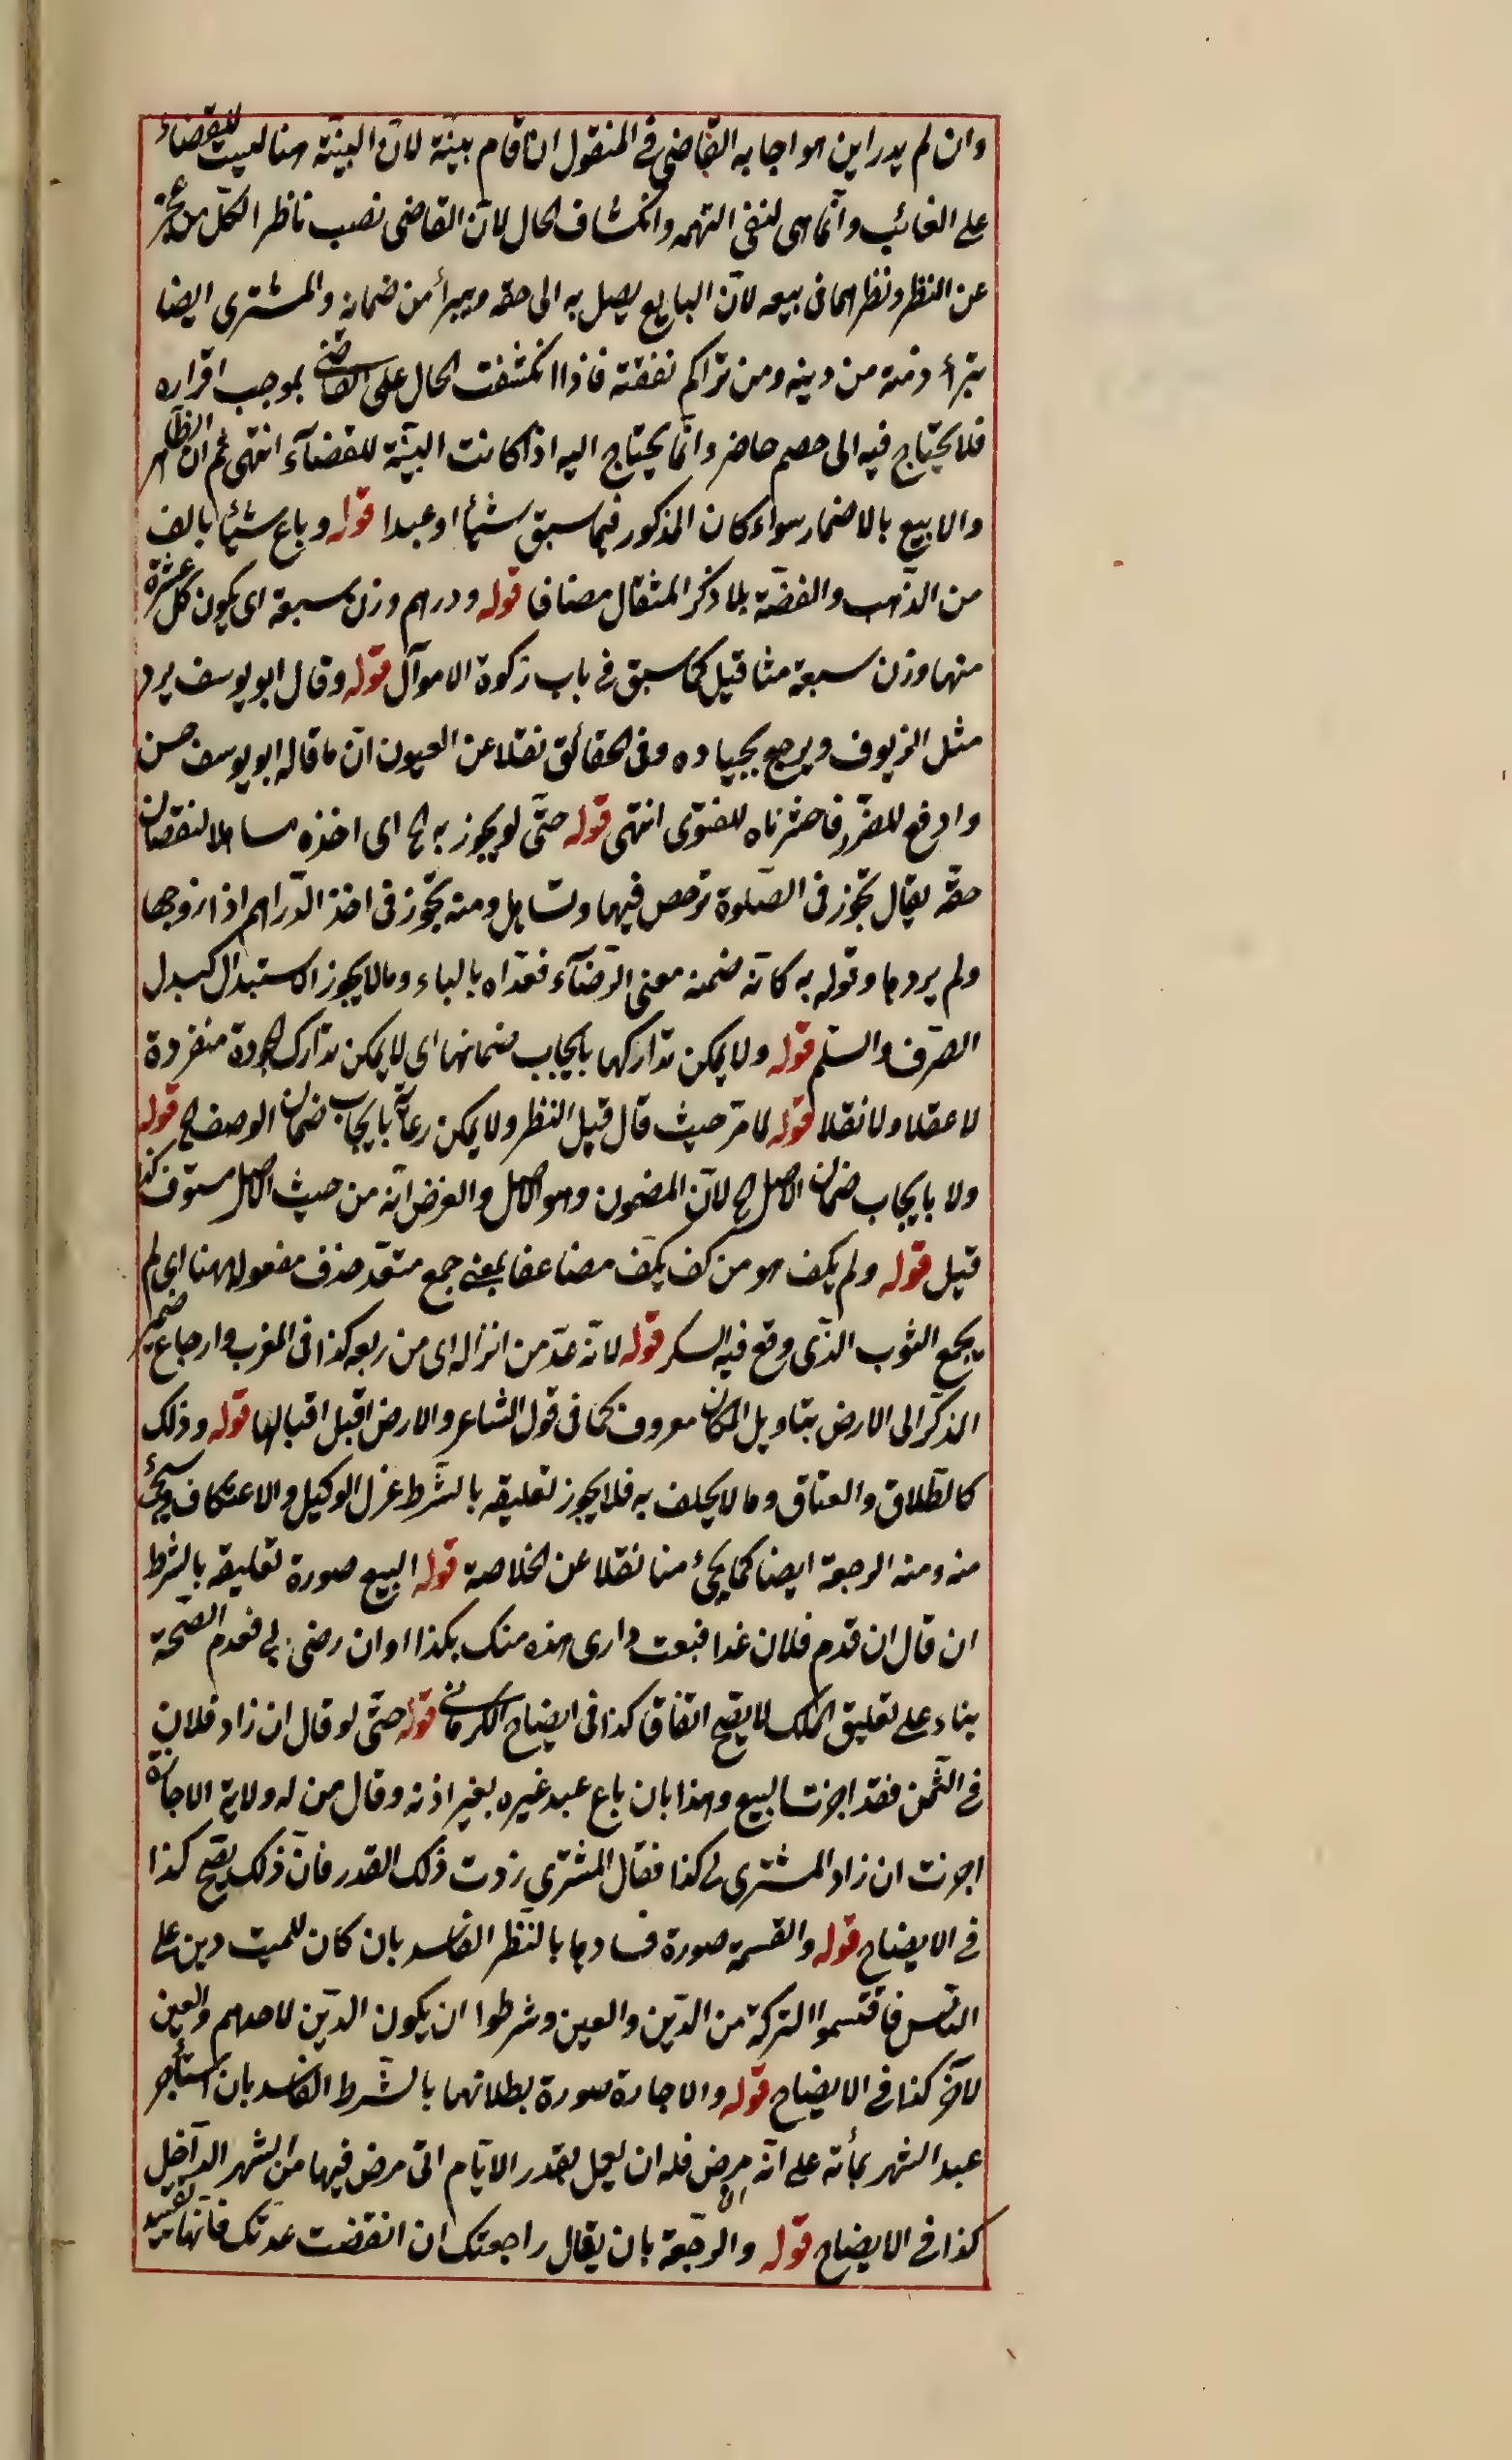 وان لم يدر اين هو اجابه القاضى فى المنقول ان اقام بينة لان البينة هنا ليست للقضاء
على الغائب وانما هى لنفى التهمه وانكشاف الحال لان القاضى نصب ناظرا لكل من عجز
عن النظر ونظرهما فى بيعه لان البايع يصل به الى حقه ويبرأ من ضمانه والمشترى ايضا
تبرأ ذمته من دينه ومن تراكم نفقته فاذا انكشفت الحال على القاضى بموجب اقراره
فلا يحتاج فيه الى خصم حاضر وانما يحتاج اليه اذا كانت البينة للقضآء انتهى ثم ان الظاهر
والا بيع بالاضمار سواء كان المذكور فيما سبق شيئا او عبدا قوله وباع شيئا بالف
من الذهب والفضة بلا ذكر المثقال مضافا قوله ودرهم وزن سبعة اى يكون كل عشرة
منها وزن سبعة مثاقيل كما سبق فى باب زكوة الاموآل قوله وقال ابو يوسف يرد
مثل الزيوف ويرجع بجياده وفى الحقائق نقلا عن العيون ان ما قاله ابو يوسف حسن
وادفع للضرر فاخترناه للفتوى انتهى قوله حتى لو تجوز به الخ اى اخذه مساهلا لنقصان
حقه يقال تجوز فى الصلوة ترخص فيها وتساهل ومنه تجوز فى اخذ الدراهم اذا روجها
ولم يردها وقوله به كانه ضمنه معنى الرضآء فعداه بالباء وما لا يجوز الاستبدال كبدل
الصرف والسلم قوله ولا يمكن تداركها بايجاب ضمانها اى لا يمكن تدارك الجودة منفردة
لا عقلا ولا نقلا قوله لما مر حيث قال قبيل النظر ولا يمكن رعاية بايجاب ضمان الوصف الخ قوله
ولا بايجاب ضمان الاصل الخ لان المضمون وهو الاصل والغرض انه من حيث الاصل مستوف كذا
قيل قوله ولم يكف هو من كف يكف مضاعفا بمعنى جمع متعد حذف مفعوله هنا اى لم
يجمع الثوب الذى وقع فيه السكر قوله لانه عد من انزاله اى من ريعه كذا فى المغرب وارجاع ضمير
المذكر الى الارض بتاويل المكان معروف كما فى قول الشاعر والارض اقبل اقبالها قوله وذلك
كالطلاق والعتاق وما لا يحلف به فلا يجوز تعليقه بالشرط عزل الوكيل والاعتكاف وسيجئ
منه ومنه الرجعة ايضا كما يجئ منا نقلا عن الخلاصة قوله البيع صورة تعليقه بالشرط
ان قال ان قدم فلان غدا فبعت دارى هذه منك بكذا او ان رضى بى فعدم الصحة
بناء على تعليق الملك لا يصح اتفاقا كذا فى ايضاح الكرمانى قوله حتى لو قال ان زاد فلان
فى الثمن فقد اجزت البيع وهذا بان باع عبد غيره بغير اذنه وقال من له ولاية الاجازة
اجزت ان زاد المشترى لى كذا فقال المشترى زدت ذلك القدر فان ذلك يصح كذا
فى الايضاح قوله والقسمة صورة فسادها بالنظر الفاسد بان كان للميت دين على
الناس فاقتسموا التركة من الدين والعين وشرطوا ان يكون الدين لاحدهم والعين
لآخر كذا فى الايضاح قوله والاجارة صورة بطلانها بالشرط الفاسد بان استأجر
عبدا لشهر بمأته على انه ان مرض فله ان يعمل بقدر الايام التى مرض فيها من الشهر الداخل
كذا فى الايضاح قوله والرجعة بان يقال راجعتك ان انقضت عدتك فانها